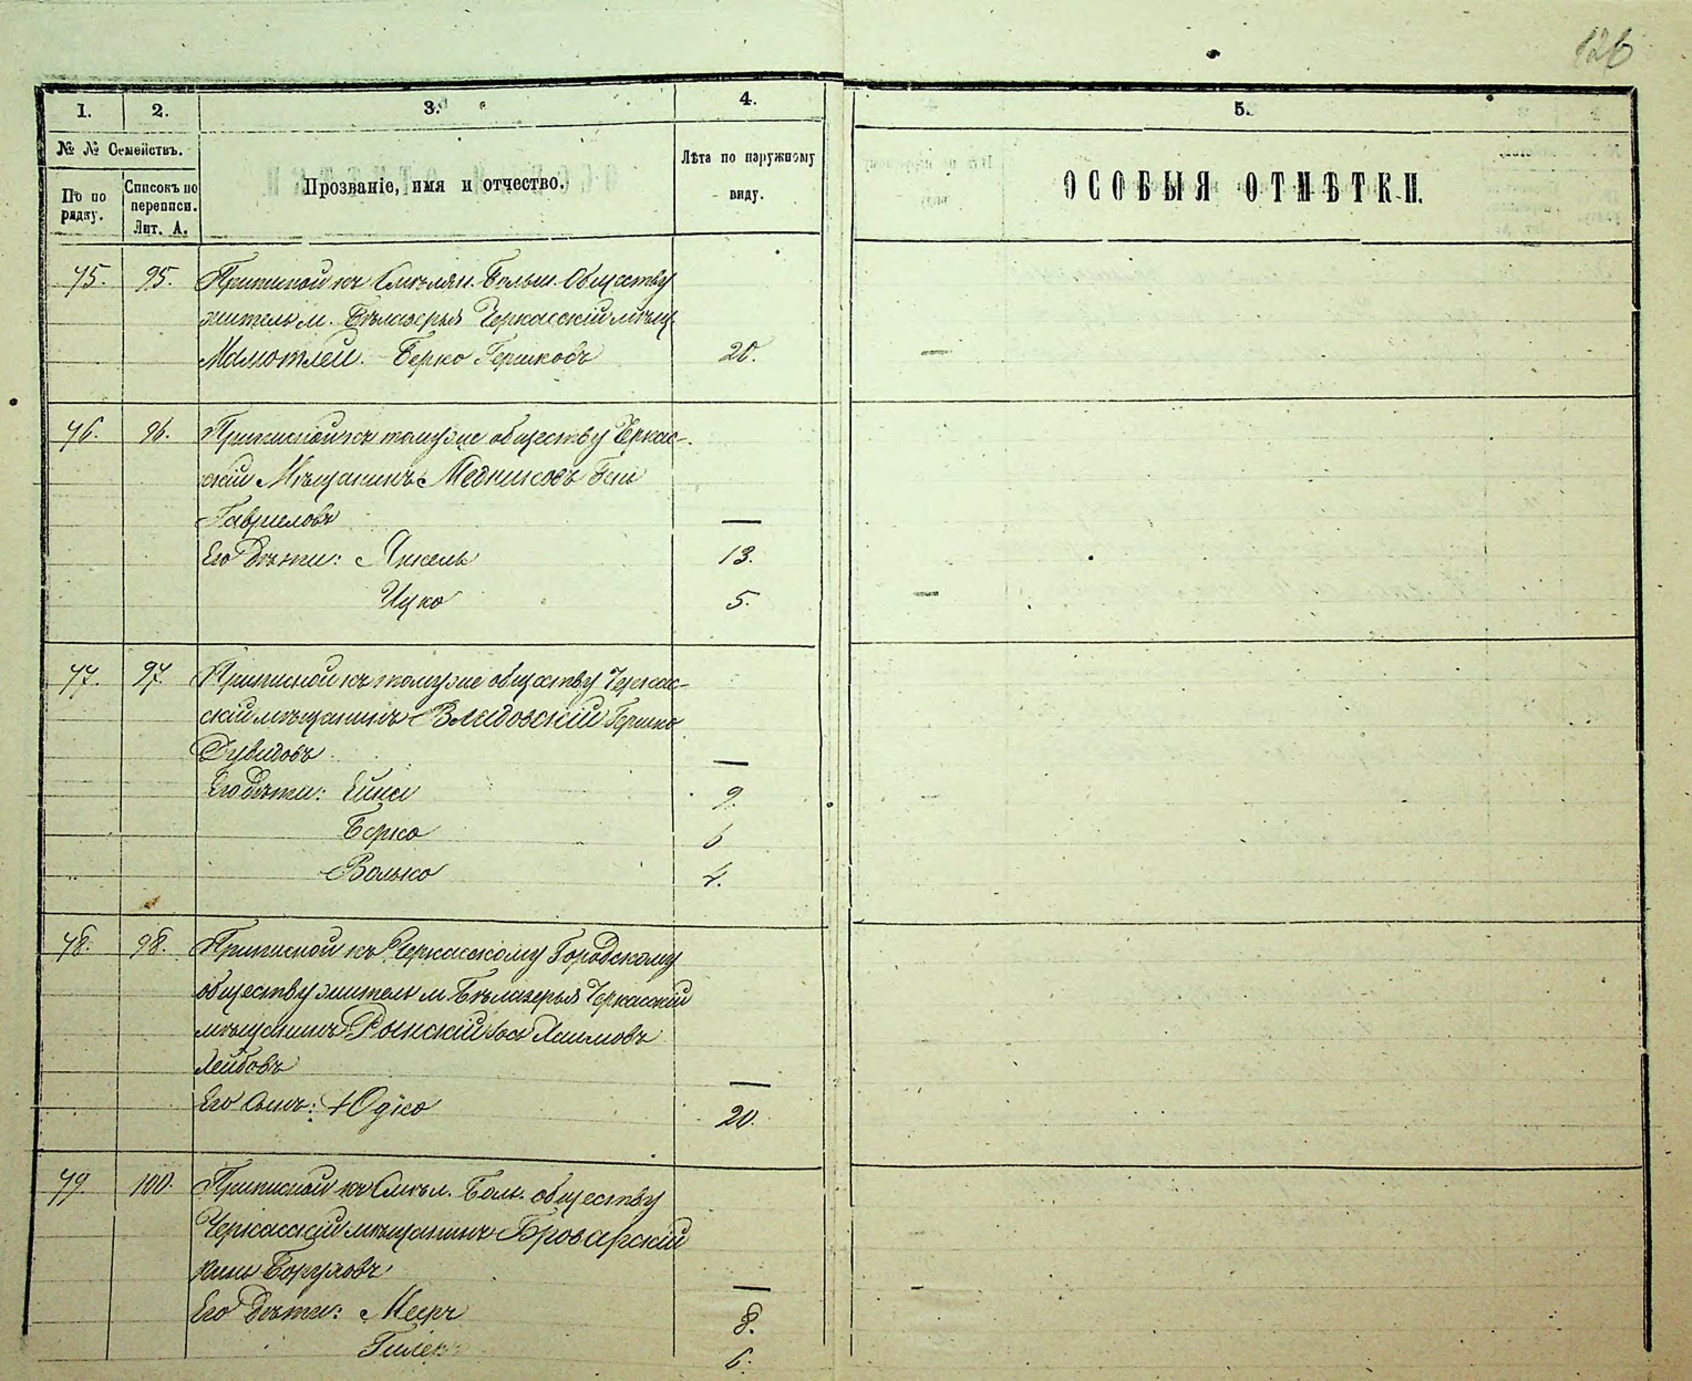 126
1. 2. 3. 4. 5.
№ № Семействъ.
По по рядку.
Списокъ по переписи. Лит. А.
Прозваніе, имя и отчество.
Лѣта по наружному виду.
ОСОБЫЯ ОТМѢТКИ.
75. 95. Приписной къ Смѣлян. Больш. Обществу
житель м. Бѣлазерья Черкасскій мѣщ.
Берко Гершковъ 20. —
76. 96. Приписной къ томуже обществу Черкас-
скій Мѣщанинъ Медниковъ
Гавриловъ —
Его дѣти: Янкель 13.
Ицко 5. —
77. 97. Приписной къ томуже обществу Черкас-
скій мѣщанинъ Гершко
Дувидовъ —
Его дѣти: 9. —
Берко 6
Волько 4.
78. 98. Приписной къ Черкасскому Городскому
обществу житель м Бѣлазерья Черкасскій
мѣщанинъ Хаимовъ
Лейбовъ —
Его сынъ: Юдко 20.
79. 100. Приписной къ Смѣл. Болш. обществу
Черкасскій мѣщанинъ Броварскій
Боруховъ — —
Его дѣти: Мееръ 8.
6.